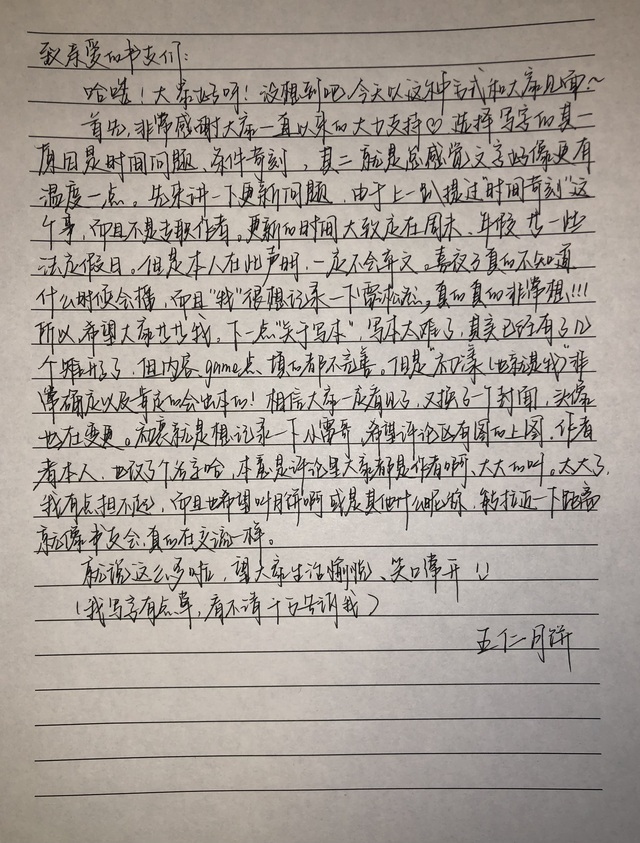 致亲爱的书友们：
哈喽！大家好呀！没想到吧，今天以这种方式和大家见面~
首先，非常感谢大家一直以来的大力支持♡ 选择写字的其一
原因是时间问题、条件苛刻，其二就是总感觉文字好像更有
温度一点。先来讲一下更新问题，由于上一趴提过"时间苛刻"这
个事，而且不是专职作者。更新的时间大致定在周末、年假 一些
法定假日。但是本人在此声明，一定不会弃文。真的不知道
什么时候会播，而且"我"很想记录一下雷松然，真的真的非常想!!!
所以，希望大家 我。下一点"关于写本"，写本太难了，其实已经有了12
个雏形了，但内容、game点、填的都不完善。但是"初漾(也就是我)"非
常确定以及肯定的会出本的！相信大家一定看见了，又换了一个封面，头像
也在变更。初衷就是想记录一下小雷哥，希望评论区有图的上图，作者
看本人，也仅3个活字哈，本意是评论里大家都是作者啊、大大的叫。太大了，
我有点担不起，而且也希望叫月饼啊 或是其他什么昵称，能拉近一下距离
就像书友会，真的在交流一样。
就说这么多啦，望大家生活愉悦、笑口常开 !!
(我写字有点草，看不清千万告诉我)
五仁月饼